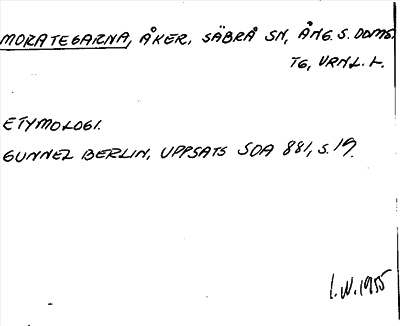 MORATEGARNA, ÅKER, SÄBRÅ SN, ÅNG. S. DOMS.
TG, VRNL. L.
ETYMOLOGI.
GUNNEL BERLIN, UPPSATS SOA 881, S. 19.
I.W. 1955